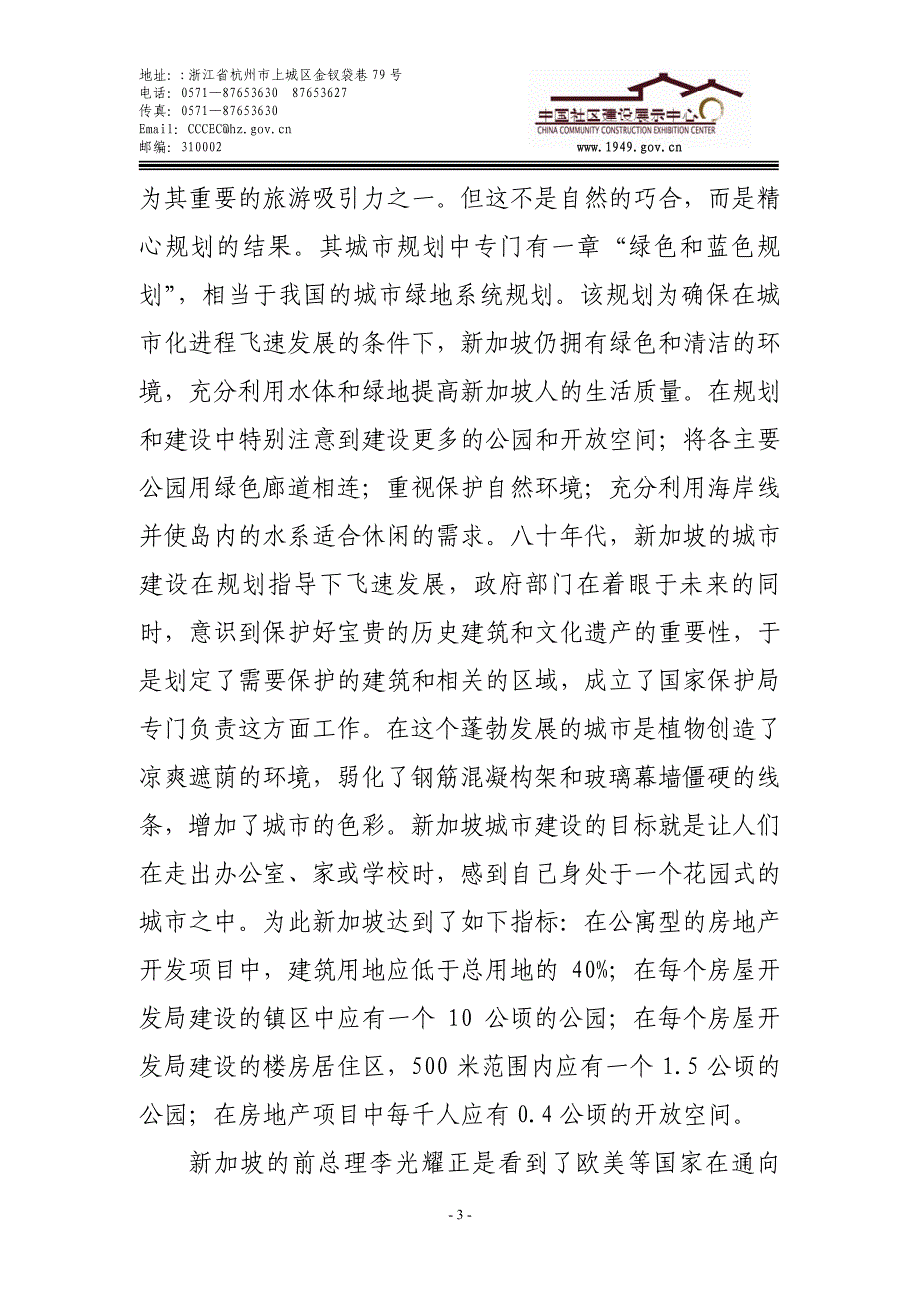 地址：:浙江省杭州市上城区金钗袋巷 79 号
电话: 0571—87653630 87653627
传真: 0571—87653630
Email: CCCEC@hz.gov.cn
邮编: 310002
中国社区建设展示中心
CHINA COMMUNITY CONSTRUCTION EXHIBITION CENTER
www.1949.gov.cn
为其重要的旅游吸引力之一。但这不是自然的巧合，而是精
心规划的结果。其城市规划中专门有一章“绿色和蓝色规
划”，相当于我国的城市绿地系统规划。该规划为确保在城
市化进程飞速发展的条件下，新加坡仍拥有绿色和清洁的环
境，充分利用水体和绿地提高新加坡人的生活质量。在规划
和建设中特别注意到建设更多的公园和开放空间；将各主要
公园用绿色廊道相连；重视保护自然环境；充分利用海岸线
并使岛内的水系适合休闲的需求。八十年代，新加坡的城市
建设在规划指导下飞速发展，政府部门在着眼于未来的同
时，意识到保护好宝贵的历史建筑和文化遗产的重要性，于
是划定了需要保护的建筑和相关的区域，成立了国家保护局
专门负责这方面工作。在这个蓬勃发展的城市是植物创造了
凉爽遮荫的环境，弱化了钢筋混凝构架和玻璃幕墙僵硬的线
条，增加了城市的色彩。新加坡城市建设的目标就是让人们
在走出办公室、家或学校时，感到自己身处于一个花园式的
城市之中。为此新加坡达到了如下指标：在公寓型的房地产
开发项目中，建筑用地应低于总用地的 40%；在每个房屋开
发局建设的镇区中应有一个 10 公顷的公园；在每个房屋开
发局建设的楼房居住区，500 米范围内应有一个 1.5 公顷的
公园；在房地产项目中每千人应有 0.4 公顷的开放空间。
新加坡的前总理李光耀正是看到了欧美等国家在通向
- 3 -